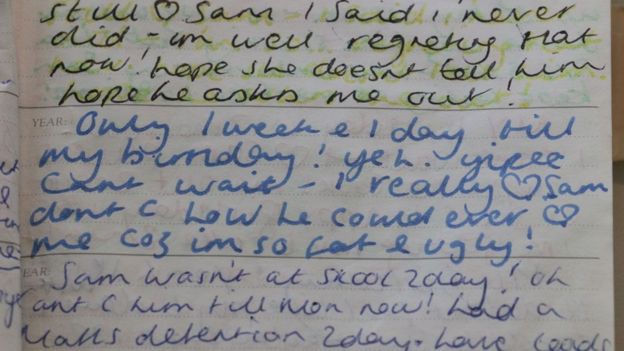 still ♡ Sam I said I never
did - im well regreting that
now! hope she doesnt tell him
hope he asks me out!
YEAR: Only 1 week & 1 day till
my birthday! yeh. yipee
Cant wait - I really ♡ Sam
dont C how he could ever ♡
me coz im so fat & ugly!
EAR: Sam wasn't at skool 2day! oh
Cant C him till mon now! had a
Maths detention 2day. have loads